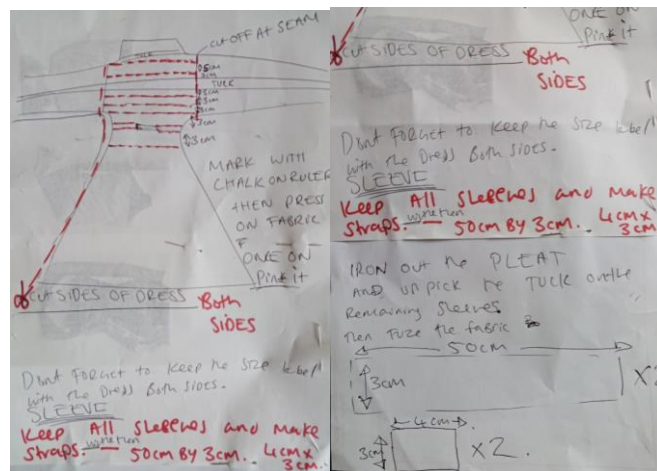 CUT OFF AT SEAM
TUCK
5cm
3cm
TUCK
3cm
3cm
3cm
3cm
3cm
MARK WITH
CHALK ON RULER
THEN PRESS
ON FABRIC
ONE ON
Pink it
CUT SIDES OF DRESS Both
SIDES
Dont FORGET to Keep the Size label
with the Dress Both Sides.
SLEEVE
Keep All Sleeves and Make
Straps. 50cm BY 3cm. 4cm x
3cm.
ONE ON
Pink it
CUT SIDES OF DRESS Both
SIDES
Dont FORGET to Keep the Size label
with the Dress Both Sides.
SLEEVE
Keep All Sleeves and Make
Straps. 50cm BY 3cm. 4cm x
3cm
IRON out the PLEAT
AND UN pick the TUCK on the
Remaining Sleeves.
Then Fuze the fabric
50cm
3cm
4cm
3cm
X2.